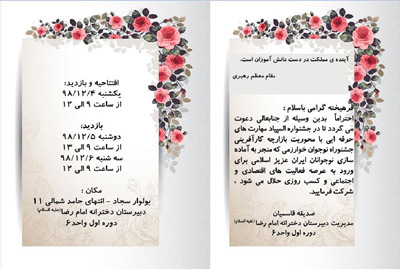 آینده ی مملکت در دست دانش آموزان است.
مقام معظم رهبری
فرهیخته گرامی باسلام :
احتراماً بدین وسیله از جنابعالی دعوت
می گردد تا در جشنواره المپیاد مهارت های
حرفه ایی با محوریت بازارچه کارآفرینی
جشنواره نوجوان خوارزمی که منجر به آماده
سازی نوجوانان ایران عزیز اسلامی برای
ورود به عرصه فعالیت های اقتصادی و
اجتماعی و کسب روزی حلال می شود ،
شرکت فرمایید.
صدیقه قاسمیان
مدیریت دبیرستان دخترانه امام رضا(علیه السلام)
دوره اول واحد۶
افتتاحیه و بازدید:
یکشنبه ۹۸/۱۲/۴
از ساعت ۹ الی ۱۲
بازدید:
دوشنبه ۹۸/۱۲/۵
از ساعت ۹ الی ۱۳
سه شنبه ۹۸/۱۲/۶
از ساعت ۹ الی ۱۲
مکان :
بولوار سجاد - انتهای حامد شمالی ۱۱
دبیرستان دخترانه امام رضا(علیه السلام)
دوره اول واحد۶